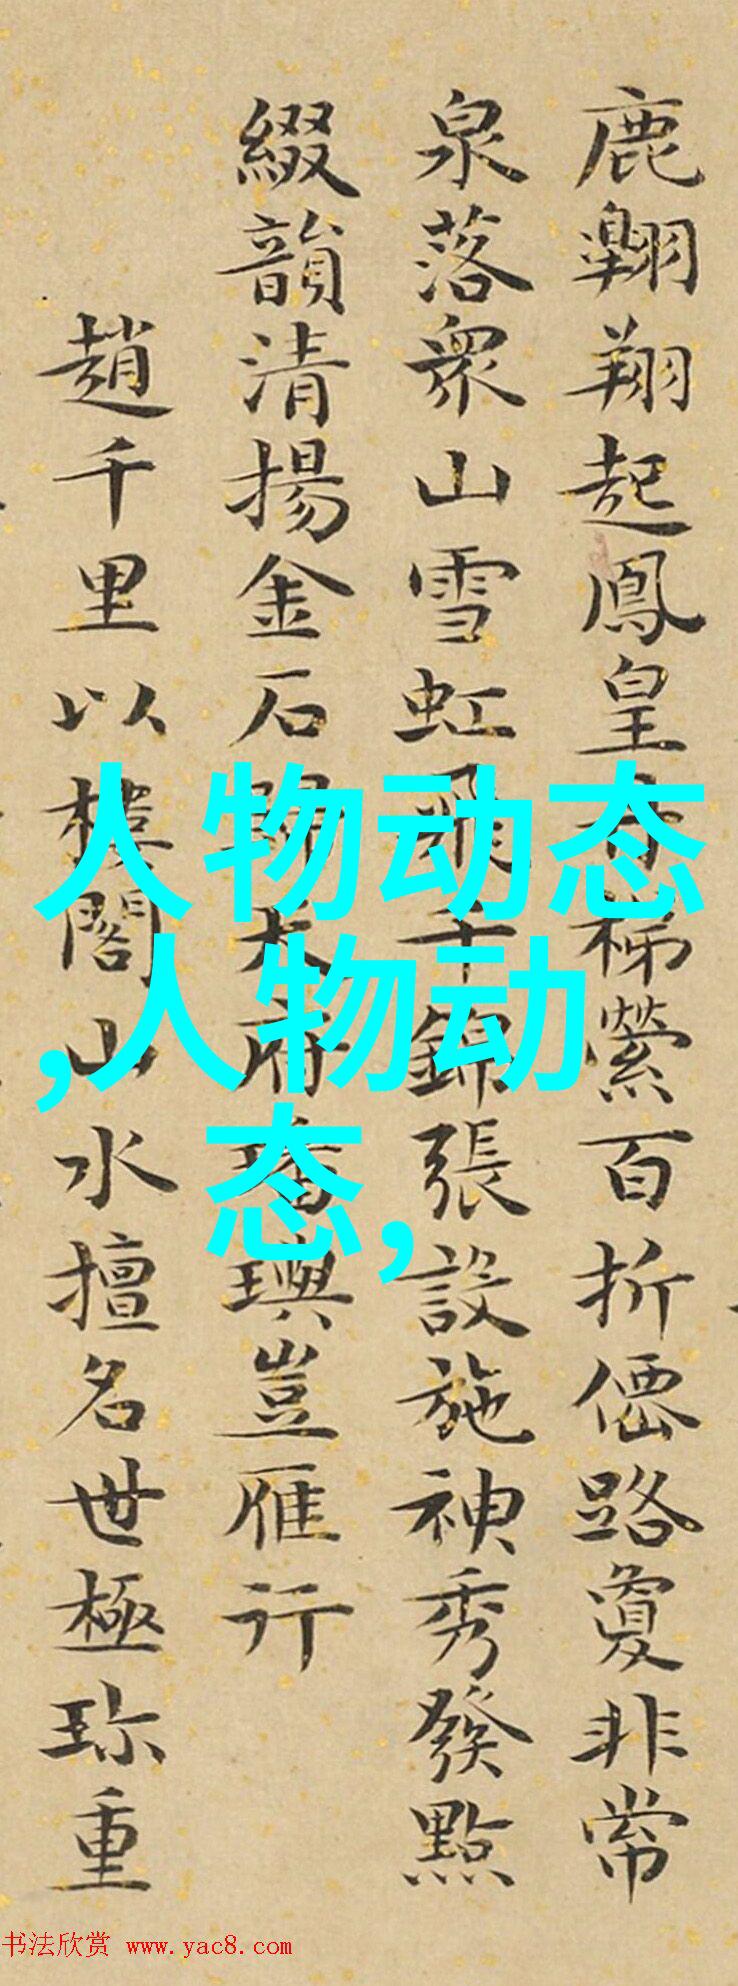 鹿翺翔起鳳皇
梯縈百折僊路敻非常
泉落衆山雪虹飛千錦張設施神秀發點
綴韻清揚金石歸天府璠璵豈雁行
趙千里以樓閣山水擅名世極珎重
人物动态
,人物动
态,
书法欣赏 www.yac8.com